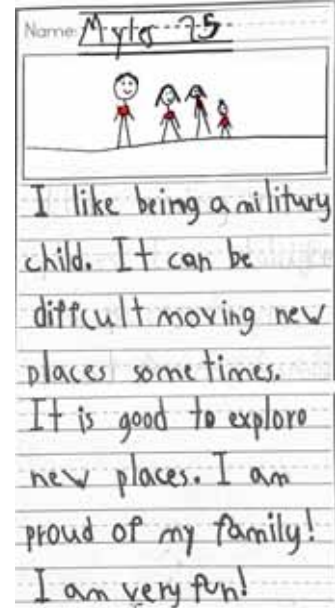 Name: Myles 75
I like being a military
child. It can be
difficult moving new
places sometimes.
It is good to explore
new places. I am
proud of my family!
I am very fun!